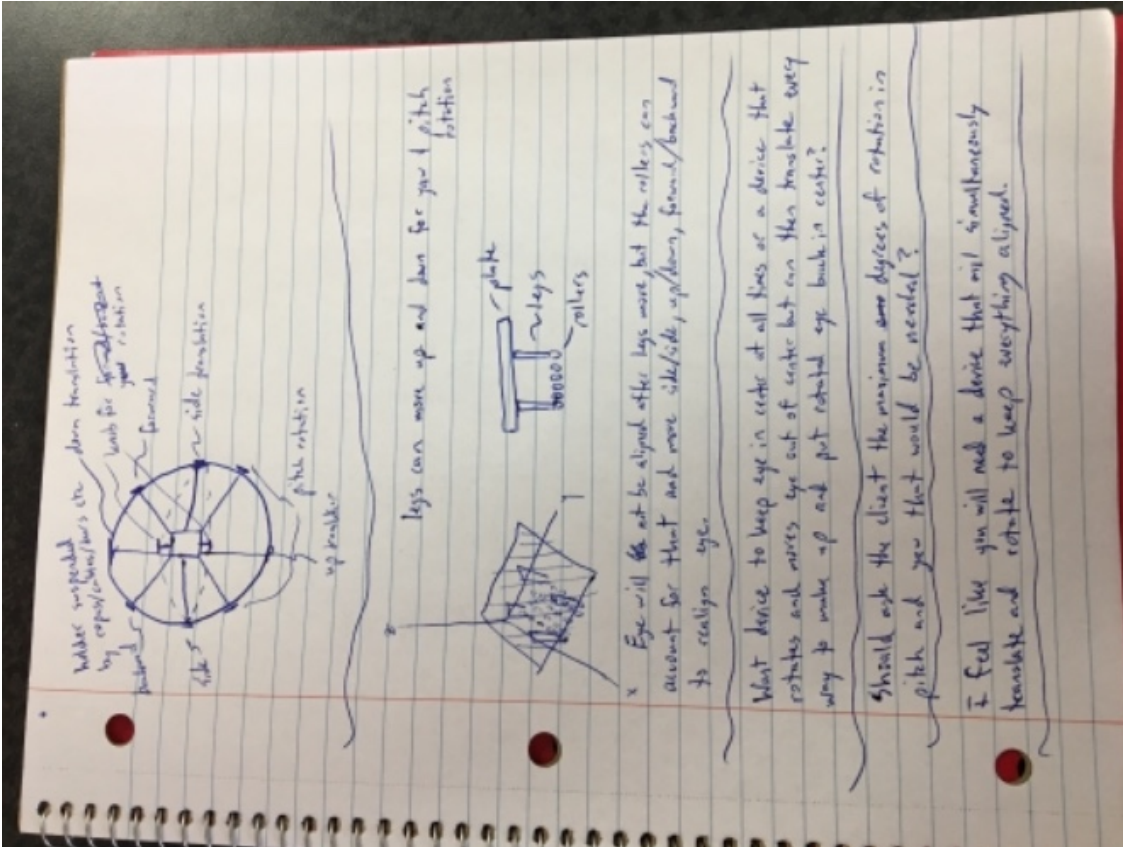 holder suspended
by ropes/cables/bars etc
down translation
knob for
yaw rotation
forward
side translation
pitch rotation
up translation
side
backward
legs can move up and down for yaw & pitch
rotation
z
x
plate
legs
rollers
Eye will not be aligned after legs move, but the rollers can
account for that and move side/side, up/down, forward/backward
to realign eye.
Want device to keep eye in center at all times or a device that
rotates and moves eye out of center but can then translate every
way to make up and put rotated eye back in center?
Should ask the client the maximum degrees of rotation in
pitch and yaw that would be needed?
I feel like you will need a device that will simultaneously
translate and rotate to keep everything aligned.